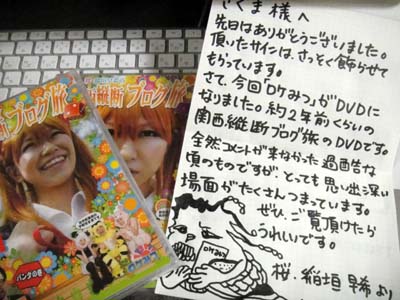 さくま様へ
先日はありがとうございました。
頂いたサインは、さっそく飾らせて
もらっています。
さて、今回ロケみつがDVDに
なりました。約2年前くらいの
関西縦断ブログ旅のDVDです。
全然コメントが来なかった過酷な
頃のものですが、とっても思い出深い
場面がたくさんつまっています。
ぜひ、ご覧頂けたら
うれしいです。
桜・稲垣早希より
ロケみつ
断ブログ旅
縦断ブログ旅
パンダの巻
ロケみつ